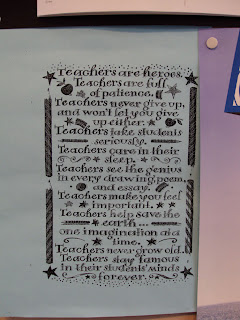 Teachers are heroes.
Teachers are full
of patience.
Teachers never give up,
and won't let you give
up either.
Teachers take students
seriously.
Teachers care in their
sleep.
Teachers see the genius
in every drawing, poem,
and essay.
Teachers make you feel
important.
Teachers help save the
earth...
one imagination at a
time.
Teachers never grow old.
Teachers stay famous
in their students' minds
forever.